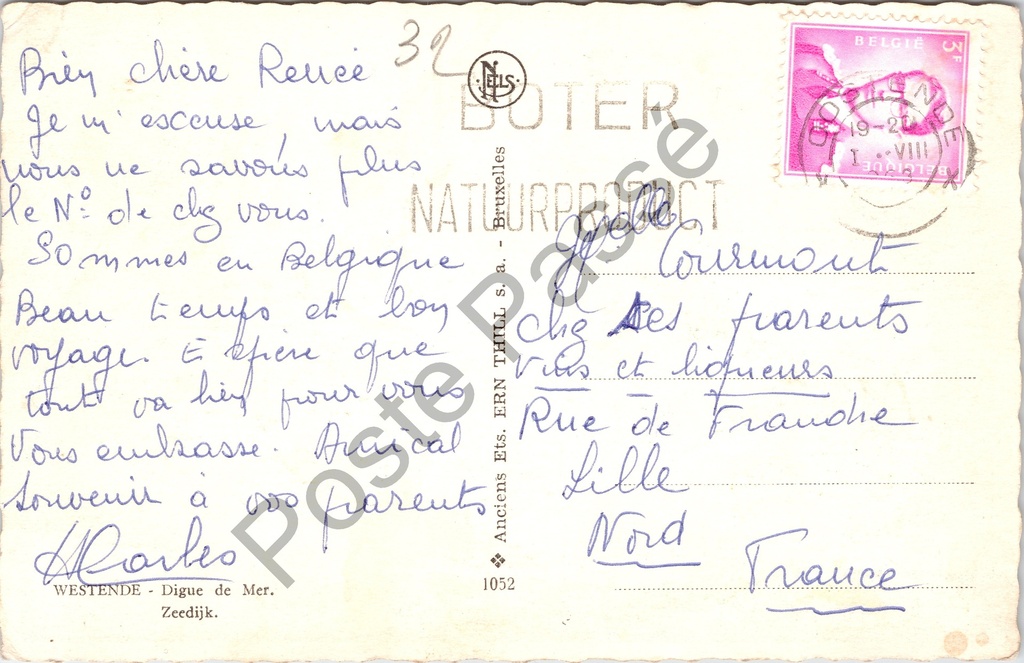 32
Bien chère Renée
Je m'excuse, mais
nous ne savons plus
le No de chez vous.
Sommes en Belgique
Beau temps et bon
voyage. Espère que
tout va bien pour vous
Vous embrasse. Amical
souvenir à vos parents
WESTENDE - Digue de Mer.
Zeedijk.
NELS
Anciens Ets. ERN THILL s. a. - Bruxelles
1052
BOTER
NATUURPRODUCT
BELGIË
3F
BELGIQUE
OOSTENDE
19-20
VIII
Courmont
chez ses parents
Vins et liqueurs
Rue de Flandre
Lille
Nord
France
Poste Passé